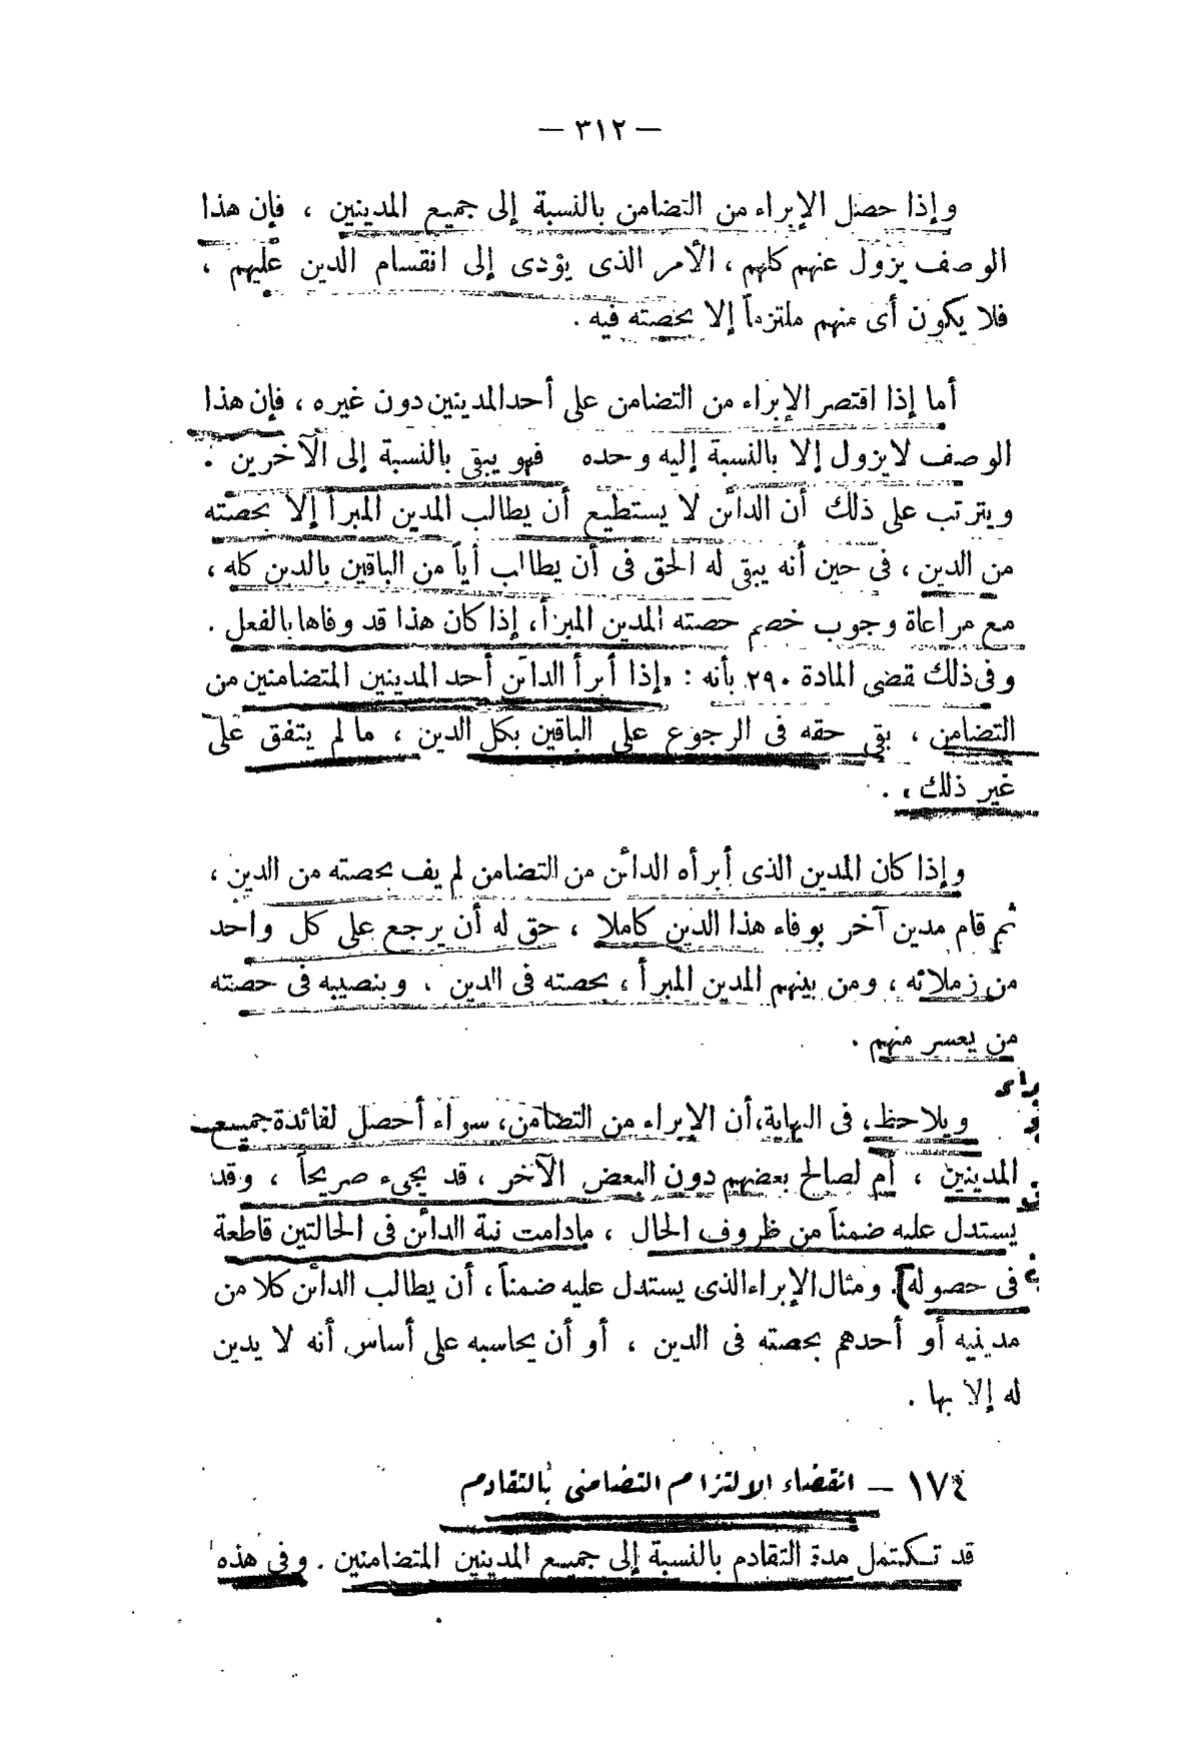 — ٣١٢ —
وإذا حصل الإبراء من التضامن بالنسبة إلى جميع المدينين ، فإن هذا
الوصف يزول عنهم كلهم ، الأمر الذى يؤدى إلى انقسام الدين عليهم ،
فلا يكون أى منهم ملتزماً إلا بحصته فيه .
أما إذا اقتصر الإبراء من التضامن على أحد المدينين دون غيره ، فإن هذا
الوصف لا يزول إلا بالنسبة إليه وحده فهو يبقى بالنسبة إلى الآخرين .
ويترتب على ذلك أن الدائن لا يستطيع أن يطالب المدين المبرأ إلا بحصته
من الدين ، فى حين أنه يبقى له الحق فى أن يطالب أياً من الباقين بالدين كله ،
مع مراعاة وجوب خصم حصته المدين المبرأ ، إذا كان هذا قد وفاها بالفعل .
وفى ذلك تقضى المادة ٢٩٠ بأنه : «إذا أبرأ الدائن أحد المدينين المتضامنين من
التضامن ، بقى حقه فى الرجوع على الباقين بكل الدين ، ما لم يتفق على
غير ذلك » .
وإذا كان المدين الذى أبرأه الدائن من التضامن لم يف بحصته من الدين ،
ثم قام مدين آخر بوفاء هذا الدين كاملا ، حق له أن يرجع على كل واحد
من زملائه ، ومن بينهم المدين المبرأ ، بحصته فى الدين ، وبنصيبه فى حصته
من يعسر منهم .
ويلاحظ ، فى النهاية ، أن الإبراء من التضامن ، سواء أحصل لفائدة جميع
المدينين ، أم لصالح بعضهم دون البعض الآخر ، قد يجىء صريحاً ، وقد
يستدل عليه ضمناً من ظروف الحال ، مادامت نية الدائن فى الحالتين قاطعة
فى حصوله . ومثال الإبراء الذى يستدل عليه ضمناً ، أن يطالب الدائن كلا من
مدينيه أو أحدهم بحصته فى الدين ، أو أن يحاسبه على أساس أنه لا يدين
له إلا بها .
١٧٤ — انقضاء الالتزام التضامنى بالتقادم
قد تكتمل مدة التقادم بالنسبة إلى جميع المدينين المتضامنين . وفى هذه